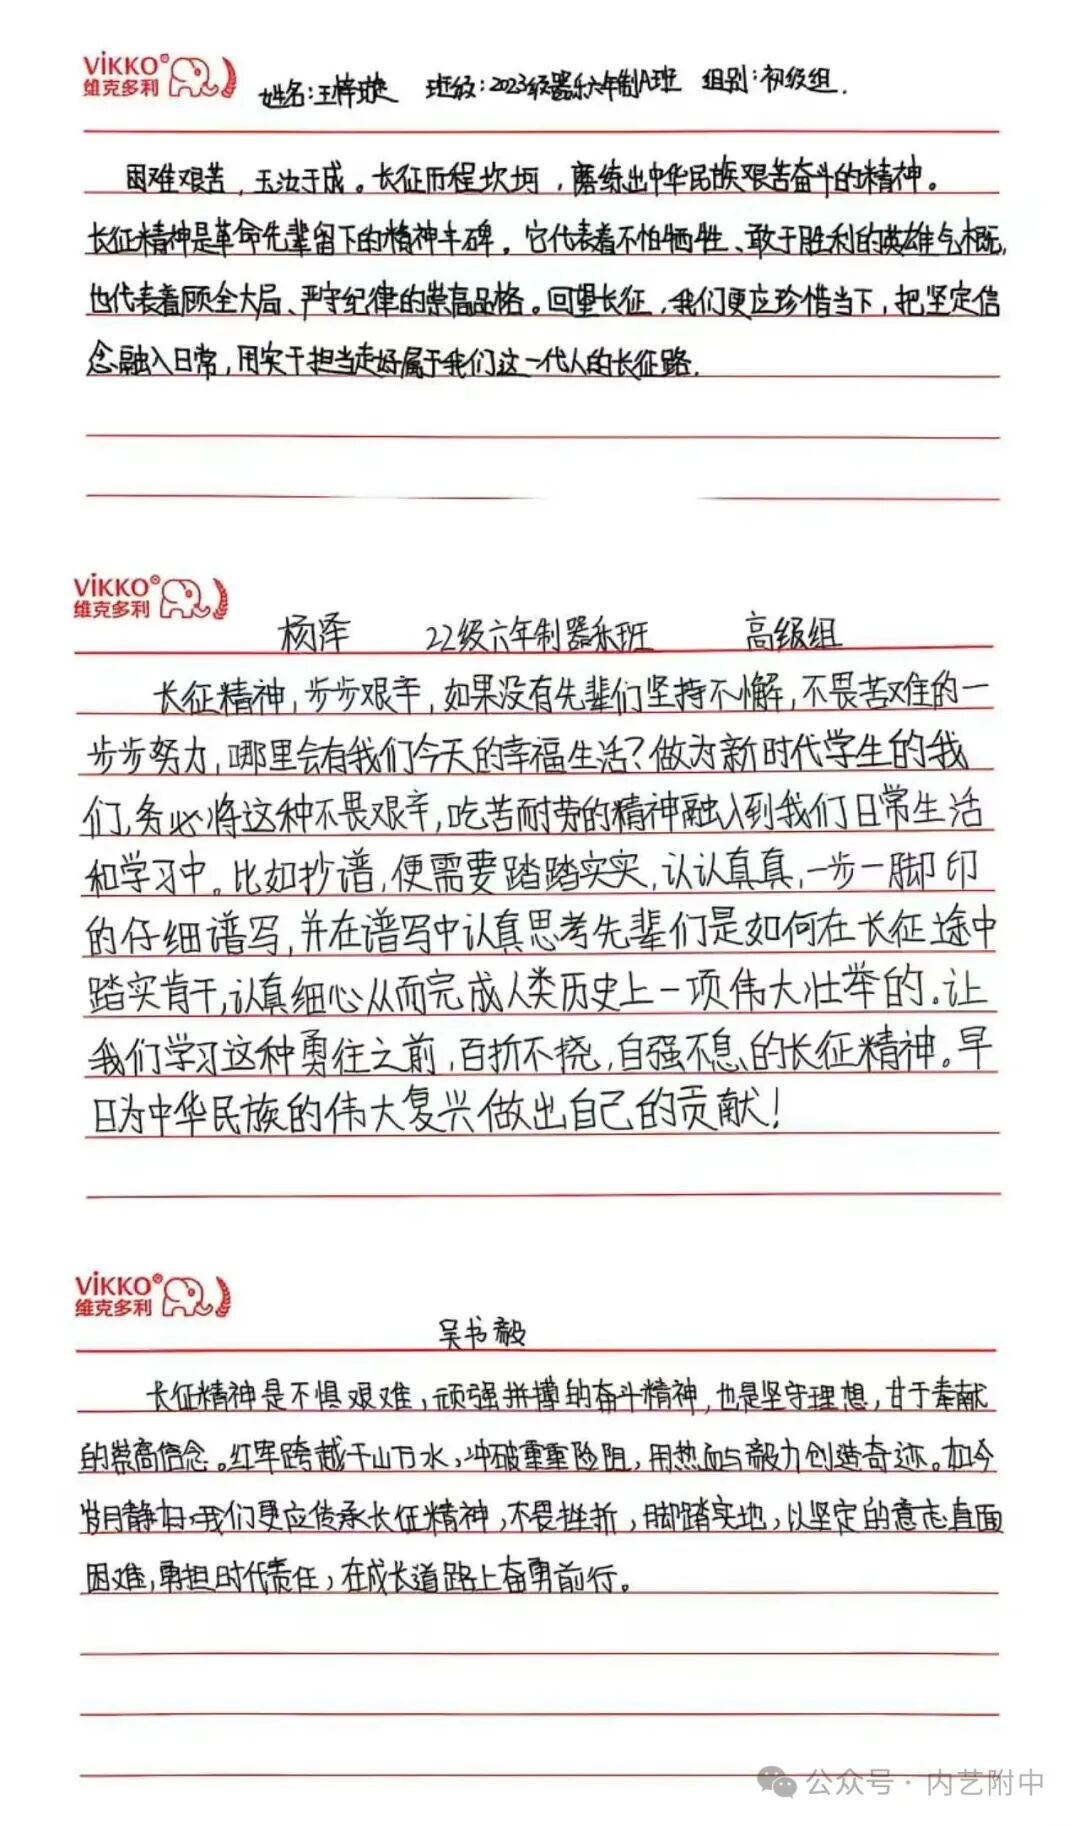 ViKKO®
维克多利
姓名:王梓珺 班级:2023级器乐六年制A班 组别:初级组.
困难艰苦,玉汝于成。长征历程坎坷,磨练出中华民族艰苦奋斗的精神。
长征精神是革命先辈留下的精神丰碑。它代表着不怕牺牲、敢于胜利的英雄气概,
也代表着顾全大局、严守纪律的崇高品格。回望长征,我们更应珍惜当下,把坚定信
念融入日常,用实干担当走好属于我们这一代人的长征路.
ViKKO®
维克多利
杨泽 22级六年制器乐班 高级组
长征精神,步步艰辛,如果没有先辈们坚持不懈,不畏苦难的一
步步努力,哪里会有我们今天的幸福生活?做为新时代学生的我
们,务必将这种不畏艰辛,吃苦耐劳的精神融入到我们日常生活
和学习中。比如抄谱,便需要踏踏实实,认认真真,一步一脚印
的仔细谱写,并在谱写中认真思考先辈们是如何在长征途中
踏实肯干,认真细心从而完成人类历史上一项伟大壮举的。让
我们学习这种勇往之前,百折不挠,自强不息、的长征精神。早
日为中华民族的伟大复兴做出自己的贡献!
ViKKO®
维克多利
吴书毅
长征精神是不惧艰难,顽强拼搏的奋斗精神,也是坚守理想,甘于奉献
的崇高信念。红军跨越千山万水,冲破重重险阻,用热血与毅力创造奇迹。如今
岁月静好,我们更应传承长征精神,不畏挫折,脚踏实地,以坚定的意志直面
困难,勇担时代责任,在成长道路上奋勇前行。
公众号·内艺附中